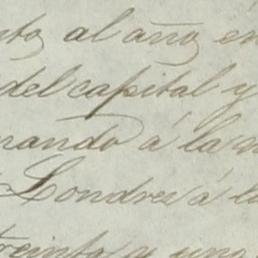 al año en
del capital y
mando á la
Londres á l
treinta y uno